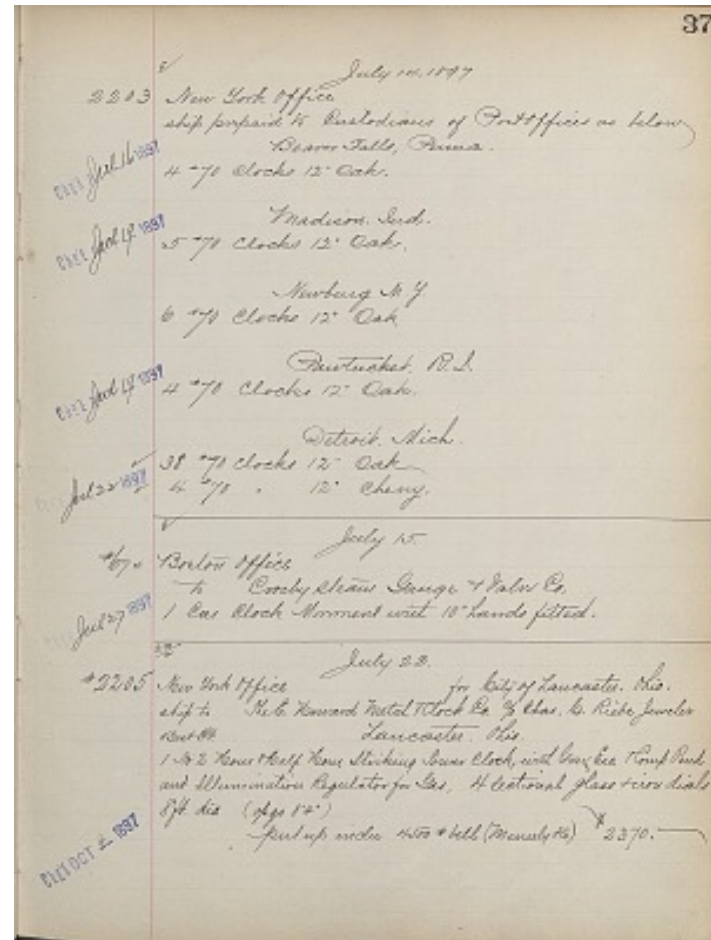 37
July 14, 1897
2203 New York Office
ship prepaid to Custodians of Post Offices as below
Beaver Falls, Penna.
Jul 16 1897
4 #70 Clocks 12" Oak.
Madison, Ind.
1897
5 #70 Clocks 12" Oak.
Newburg N.Y.
6 #70 Clocks 12" Oak
Pawtucket, R.I.
1897
4 #70 Clocks 12" Oak.
Detroit, Mich.
38 #70 Clocks 12" Oak
4 #70 " 12" Cherry.
Jul 22 1897
July 15
Boston Office
to Crosby Steam Gauge & Valve Co.
1 Clock Movement with 10" hands fitted.
Jul 27 1897
July 22.
#2205 New York Office for City of Lancaster, Ohio.
ship to The E. Howard Watch & Clock Co. c/o Chas. Jeweler
Lancaster, Ohio.
1 No 2 Hour & Half Hour Striking Tower Clock, with
and Illumination Regulator for Gas, 4 Sectional glass & iron dials
8 ft dia
put up under 4500 # bell $2370.
OCT 1897